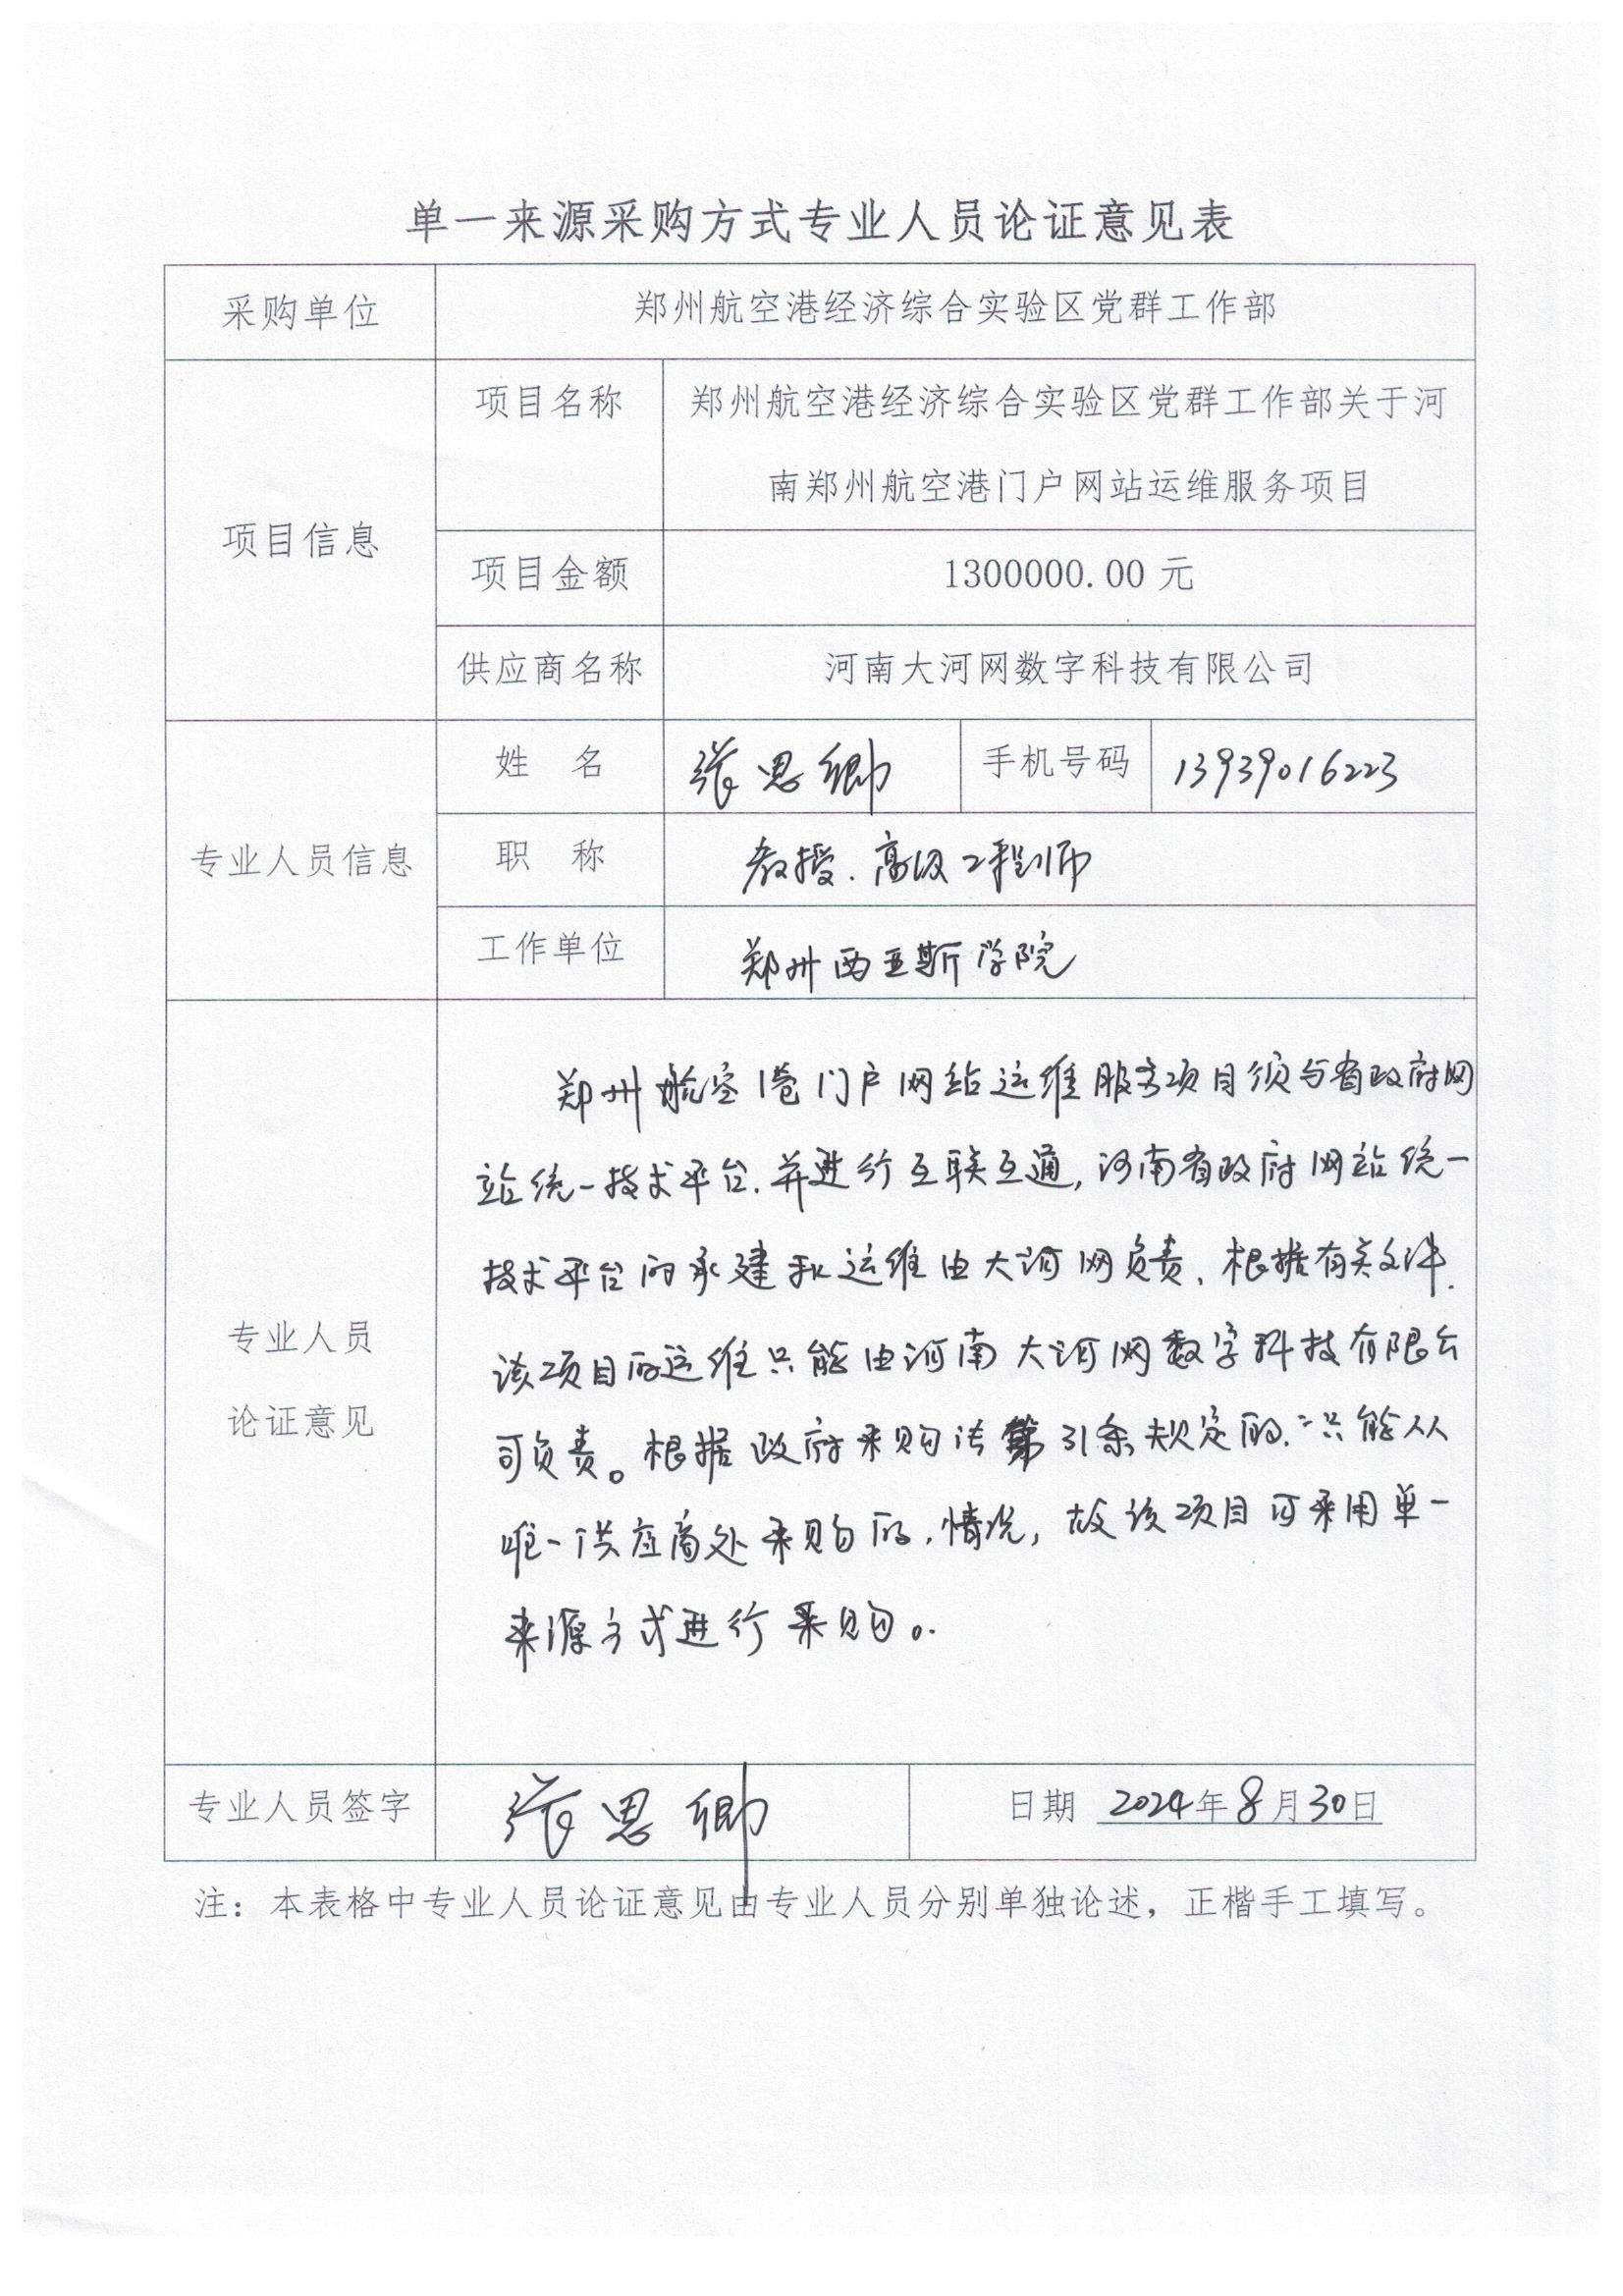 单一来源采购方式专业人员论证意见表
采购单位 郑州航空港经济综合实验区党群工作部
项目信息
项目名称 郑州航空港经济综合实验区党群工作部关于河
南郑州航空港门户网站运维服务项目
项目金额 1300000.00 元
供应商名称 河南大河网数字科技有限公司
专业人员信息
姓 名 张思卿 手机号码 13939016223
职 称 教授.高级工程师
工作单位 郑州西亚斯学院
专业人员
论证意见
郑州航空港门户网站运维服务项目须与省政府网
站统一技术平台.并进行互联互通,河南省政府网站统一
技术平台的承建和运维由大河网负责、根据有关文件.
该项目的运维只能由河南大河网数字科技有限公
司负责。根据政府采购法第31条规定的“只能从
唯一供应商处采购的,情况,故该项目可采用单一
来源方式进行采购。
专业人员签字 张思卿 日期 2024年8月30日
注：本表格中专业人员论证意见由专业人员分别单独论述，正楷手工填写。